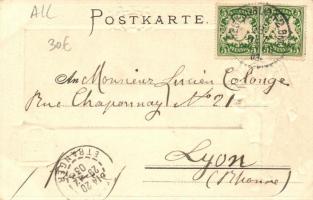 ALL
30€
POSTKARTE.
An Monsieur Lucien Colonge
Rue Chaponnay No 21
Lyon
(Rhone)
ETRANGER